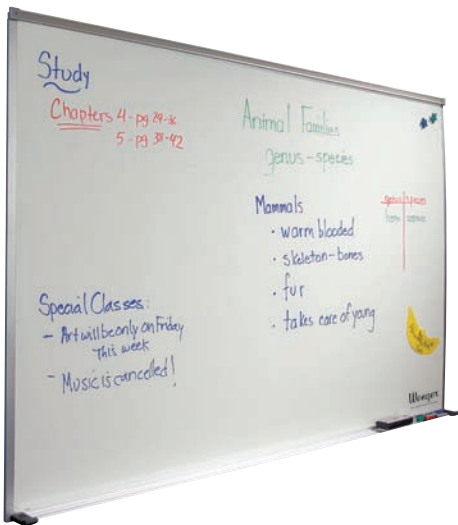 Study
Chapters 4 - pg 29-36
5 - pg 38-42
Animal Families
genus-species
Mammals
• warm blooded
• skeleton-bones
• fur
• takes care of young
genus species
homo sapiens
Special Classes:
- Art will be only on Friday
This week
- Music is cancelled!
Wenger